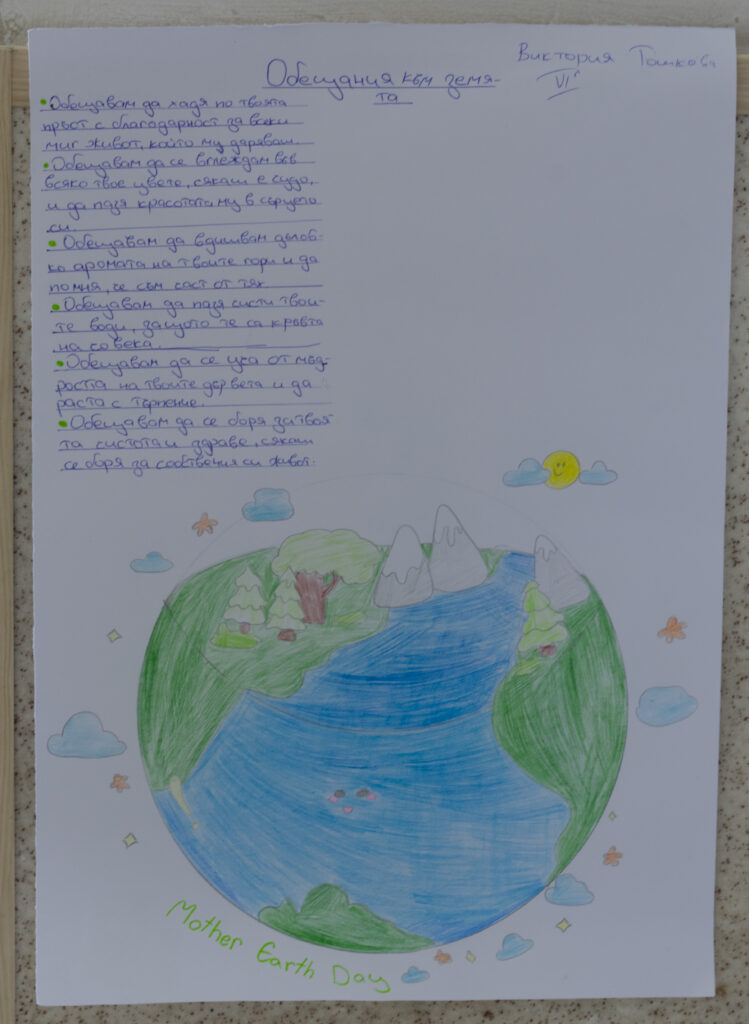 Виктория Тошкова
VIг
Обещания към земя-
та
• Обещавам да ходя по твоята
пръст с благодарност за всеки
миг живот, който му даряваш.
• Обещавам да се вглеждам във
всяко твое цвете, сякаш е чудо,
и да пазя красотата му в сърцето
си.
• Обещавам да вдишвам дълбо-
ко аромата на твоите гори и да
помня, че съм част от тях.
• Обещавам да пазя чисти твои-
те води, защото те са кръвта
на човека.
• Обещавам да се уча от мъд-
ростта на твоите дървета и да
раста с търпение.
• Обещавам да се боря за твоя-
та чистота и здраве, сякаш
се боря за собствения си живот.
Mother Earth Day